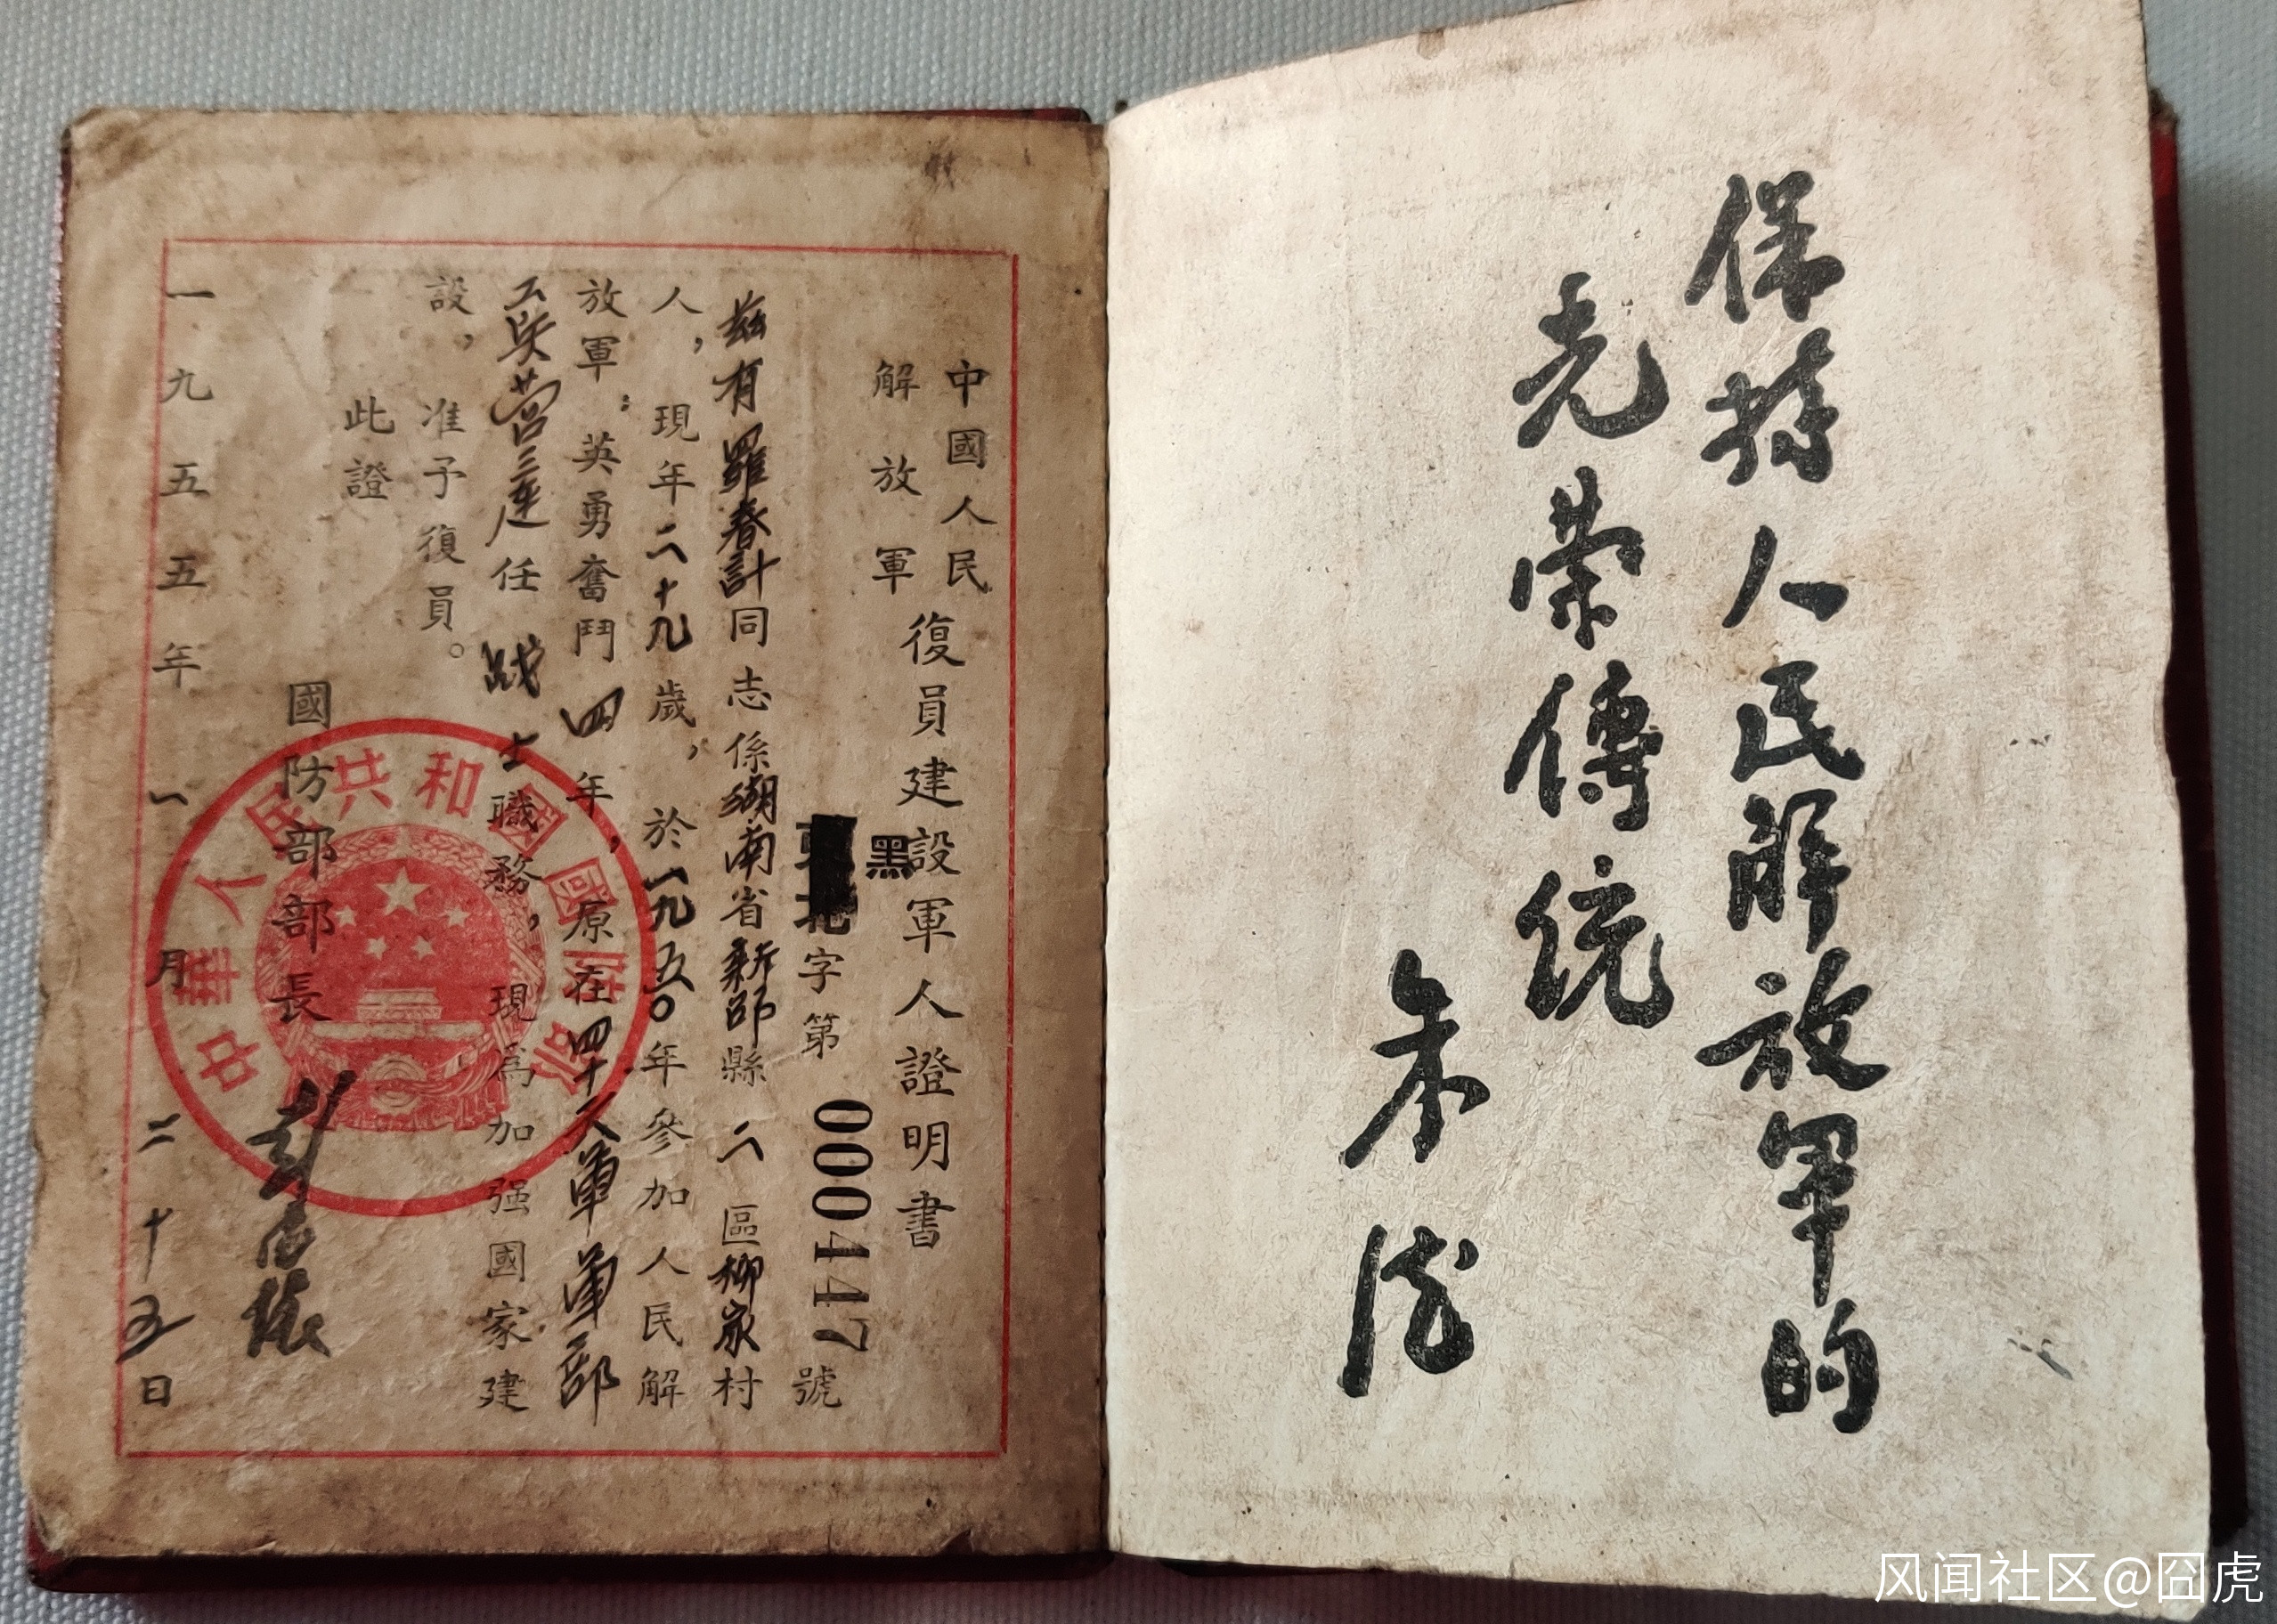 保持人民解放軍的
光荣傳統
朱德
中國人民
解放軍
復員建設軍人證明書
黑
東北字第000447號
兹有羅春計同志係湖南省新邵縣二區柳家村
人，現年二十九歲，於一九五〇年參加人民解
放軍；英勇奮鬥四年，原在四十六軍軍部
工兵营三連任战士職務，現爲加强國家建
設，准予復員。
此證
國防部部長 彭德懷
中華人民共和國國防部
一九五五年一月二十五日
风闻社区@囧虎